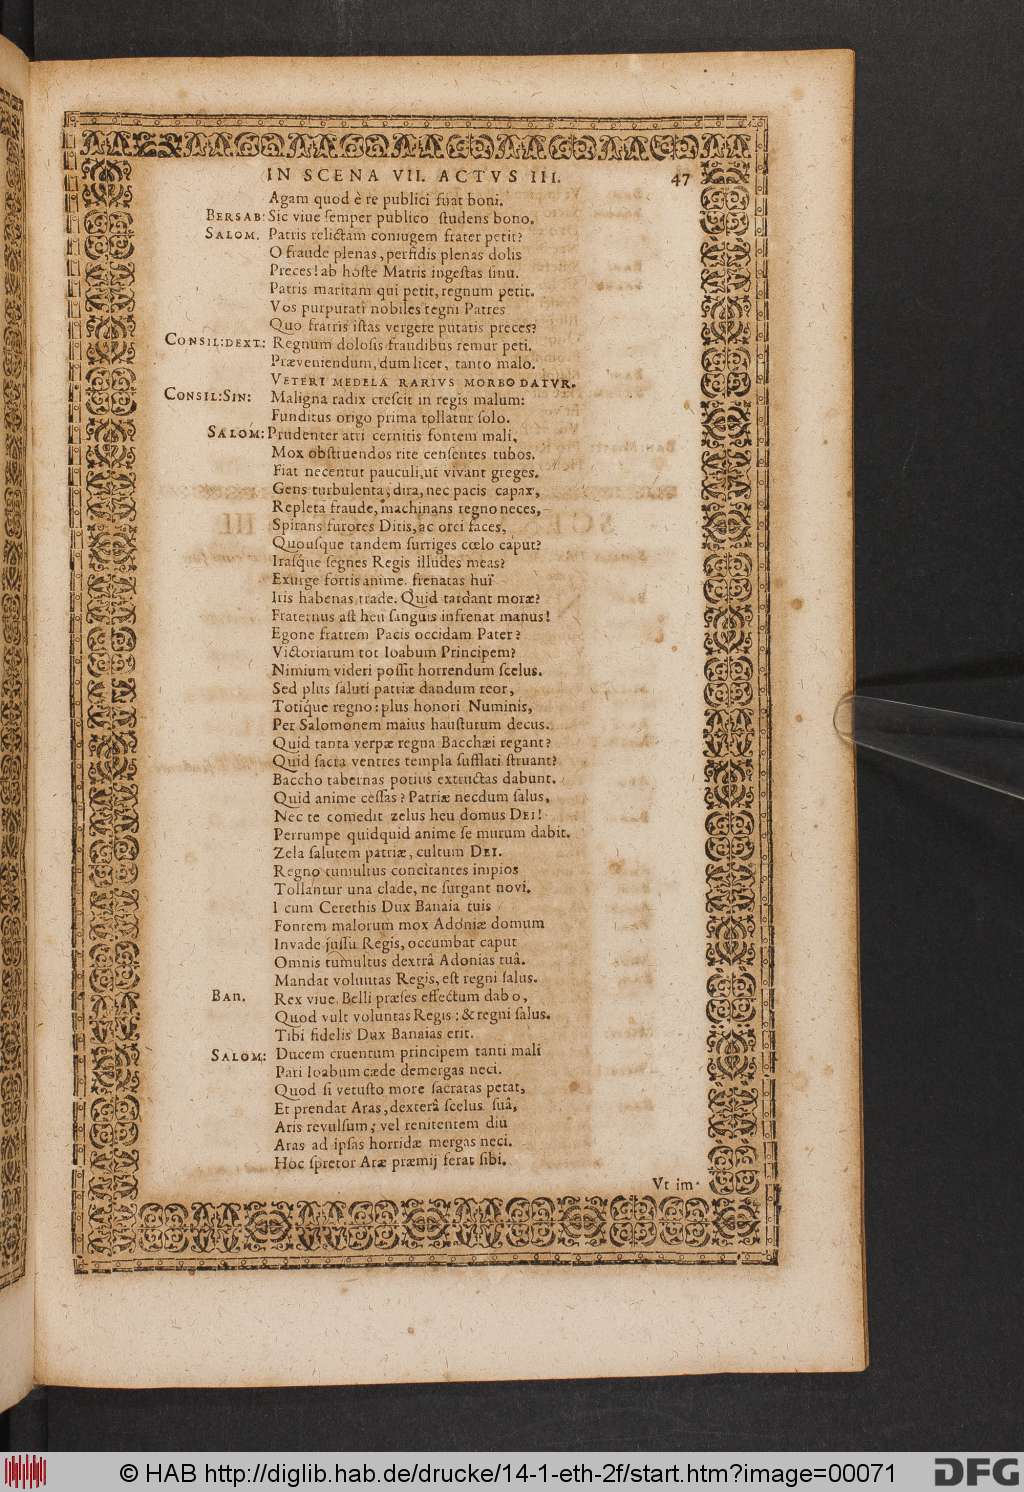 IN SCENA VII. ACTVS III. 47
Agam quod è re publici fuat boni.
BERSAB: Sic viue semper publico studens bono.
SALOM. Patris relictam coniugem frater petit?
O fraude plenas, perfidis plenas dolis
Preces! ab hoste Matris ingestas sinu.
Patris maritam qui petit, regnum petit.
Vos purpurati nobiles regni Patres
Quo fratris istas vergere putatis preces?
CONSIL: DEXT: Regnum dolosis fraudibus remur peti.
Præveniendum, dum licet, tanto malo.
VETERI MEDELA RARIVS MORBO DATVR.
CONSIL: SIN: Maligna radix crescit in regis malum:
Funditus origo prima tollatur solo.
SALOM: Prudenter atri cernitis fontem mali,
Mox obstruendos rite censentes tubos.
Fiat necentur pauculi, ut vivant greges.
Gens turbulenta, dira, nec pacis capax,
Repleta fraude, machinans regno neces,
Spirans furores Ditis, ac orci faces,
Quousque tandem surriges cœlo caput?
Irasque segnes Regis illudes meas?
Exurge fortis anime. frenatas huï
Iris habenas trade. Quid tardant moræ?
Fraternus ast heu sanguis infrenat manus!
Egone fratrem Pacis occidam Pater?
Victoriarum tot Ioabum Principem?
Nimium videri possit horrendum scelus.
Sed plus saluti patriæ dandum reor,
Totique regno: plus honori Numinis,
Per Salomonem maius hausturum decus.
Quid tanta verpæ regna Bacchæi regant?
Quid sacra ventres templa sufflati struant?
Baccho tabernas potius extructas dabunt.
Quid anime cessas? Patriæ necdum salus,
Nec te comedit zelus heu domus DEI!
Perrumpe quidquid anime se murum dabit.
Zela salutem patriæ, cultum DEI.
Regno tumultus concitantes impios
Tollantur una clade, ne surgant novi.
I cum Cerethis Dux Banaia tuis
Fontem malorum mox Adoniæ domum
Invade jussu Regis, occumbat caput
Omnis tumultus dextrâ Adonias tuâ.
Mandat voluntas Regis, est regni salus.
BAN. Rex viue. Belli præses effectum dabo,
Quod vult voluntas Regis: & regni salus.
Tibi fidelis Dux Banaias erit.
SALOM: Ducem cruentum principem tanti mali
Pari Ioabum cæde demergas neci.
Quod si vetusto more sacratas petat,
Et prendat Aras, dexterâ scelus suâ,
Aris revulsum; vel renitentem diu
Aras ad ipsas horridæ mergas neci.
Hoc spretor Aræ præmij ferat sibi.
Vt im-
© HAB http://diglib.hab.de/drucke/14-1-eth-2f/start.htm?image=00071
DFG